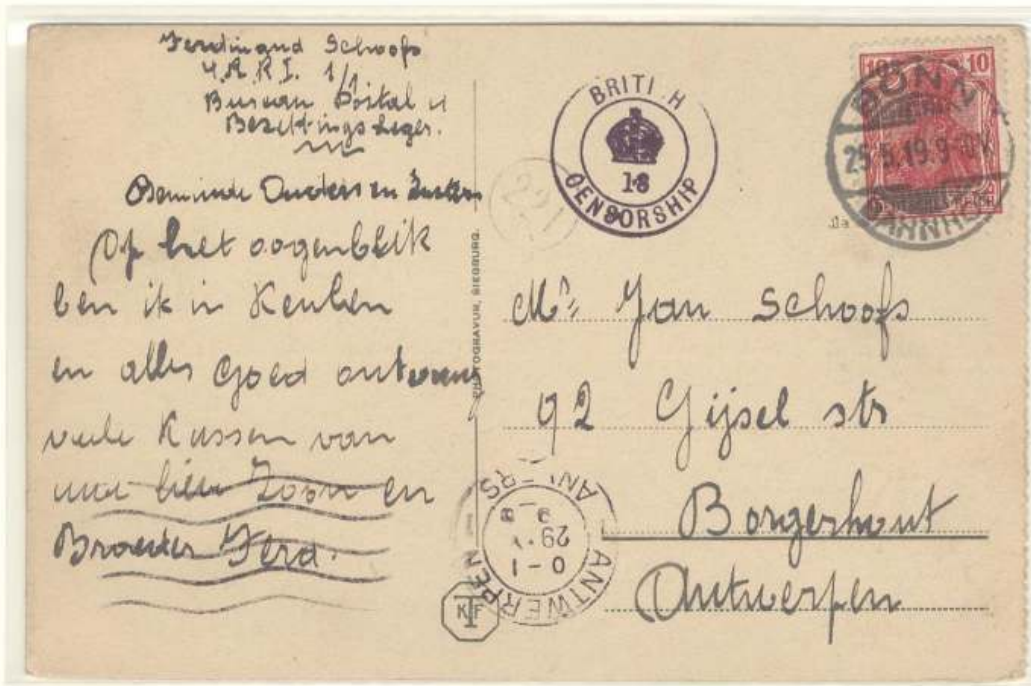 Ferdinand Schoofs
4.A.R.I. 1/1.
Bureau Postal 4
Bezettingsleger.
Beminde Ouders en Zusters
Op het oogenblik
ben ik in Keulen
en alles goed
vele Kussen van
uwe lieve Zoon en
Broeder Ferd.
PHOTOGRAVUR, SIEGBURG.
221
BRITI H
18
CENSORSHIP
10
BONN
25.5.19.9-10V.
BAHNHOF
Mr. Jan Schoofs
92 Gijsel str
Borgerhout
Antwerpen
ANTWERPEN
0-1
29
ANVERS
KTF